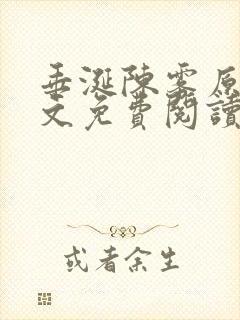 垂涎陳雾原
文免費閱讀
或者余生